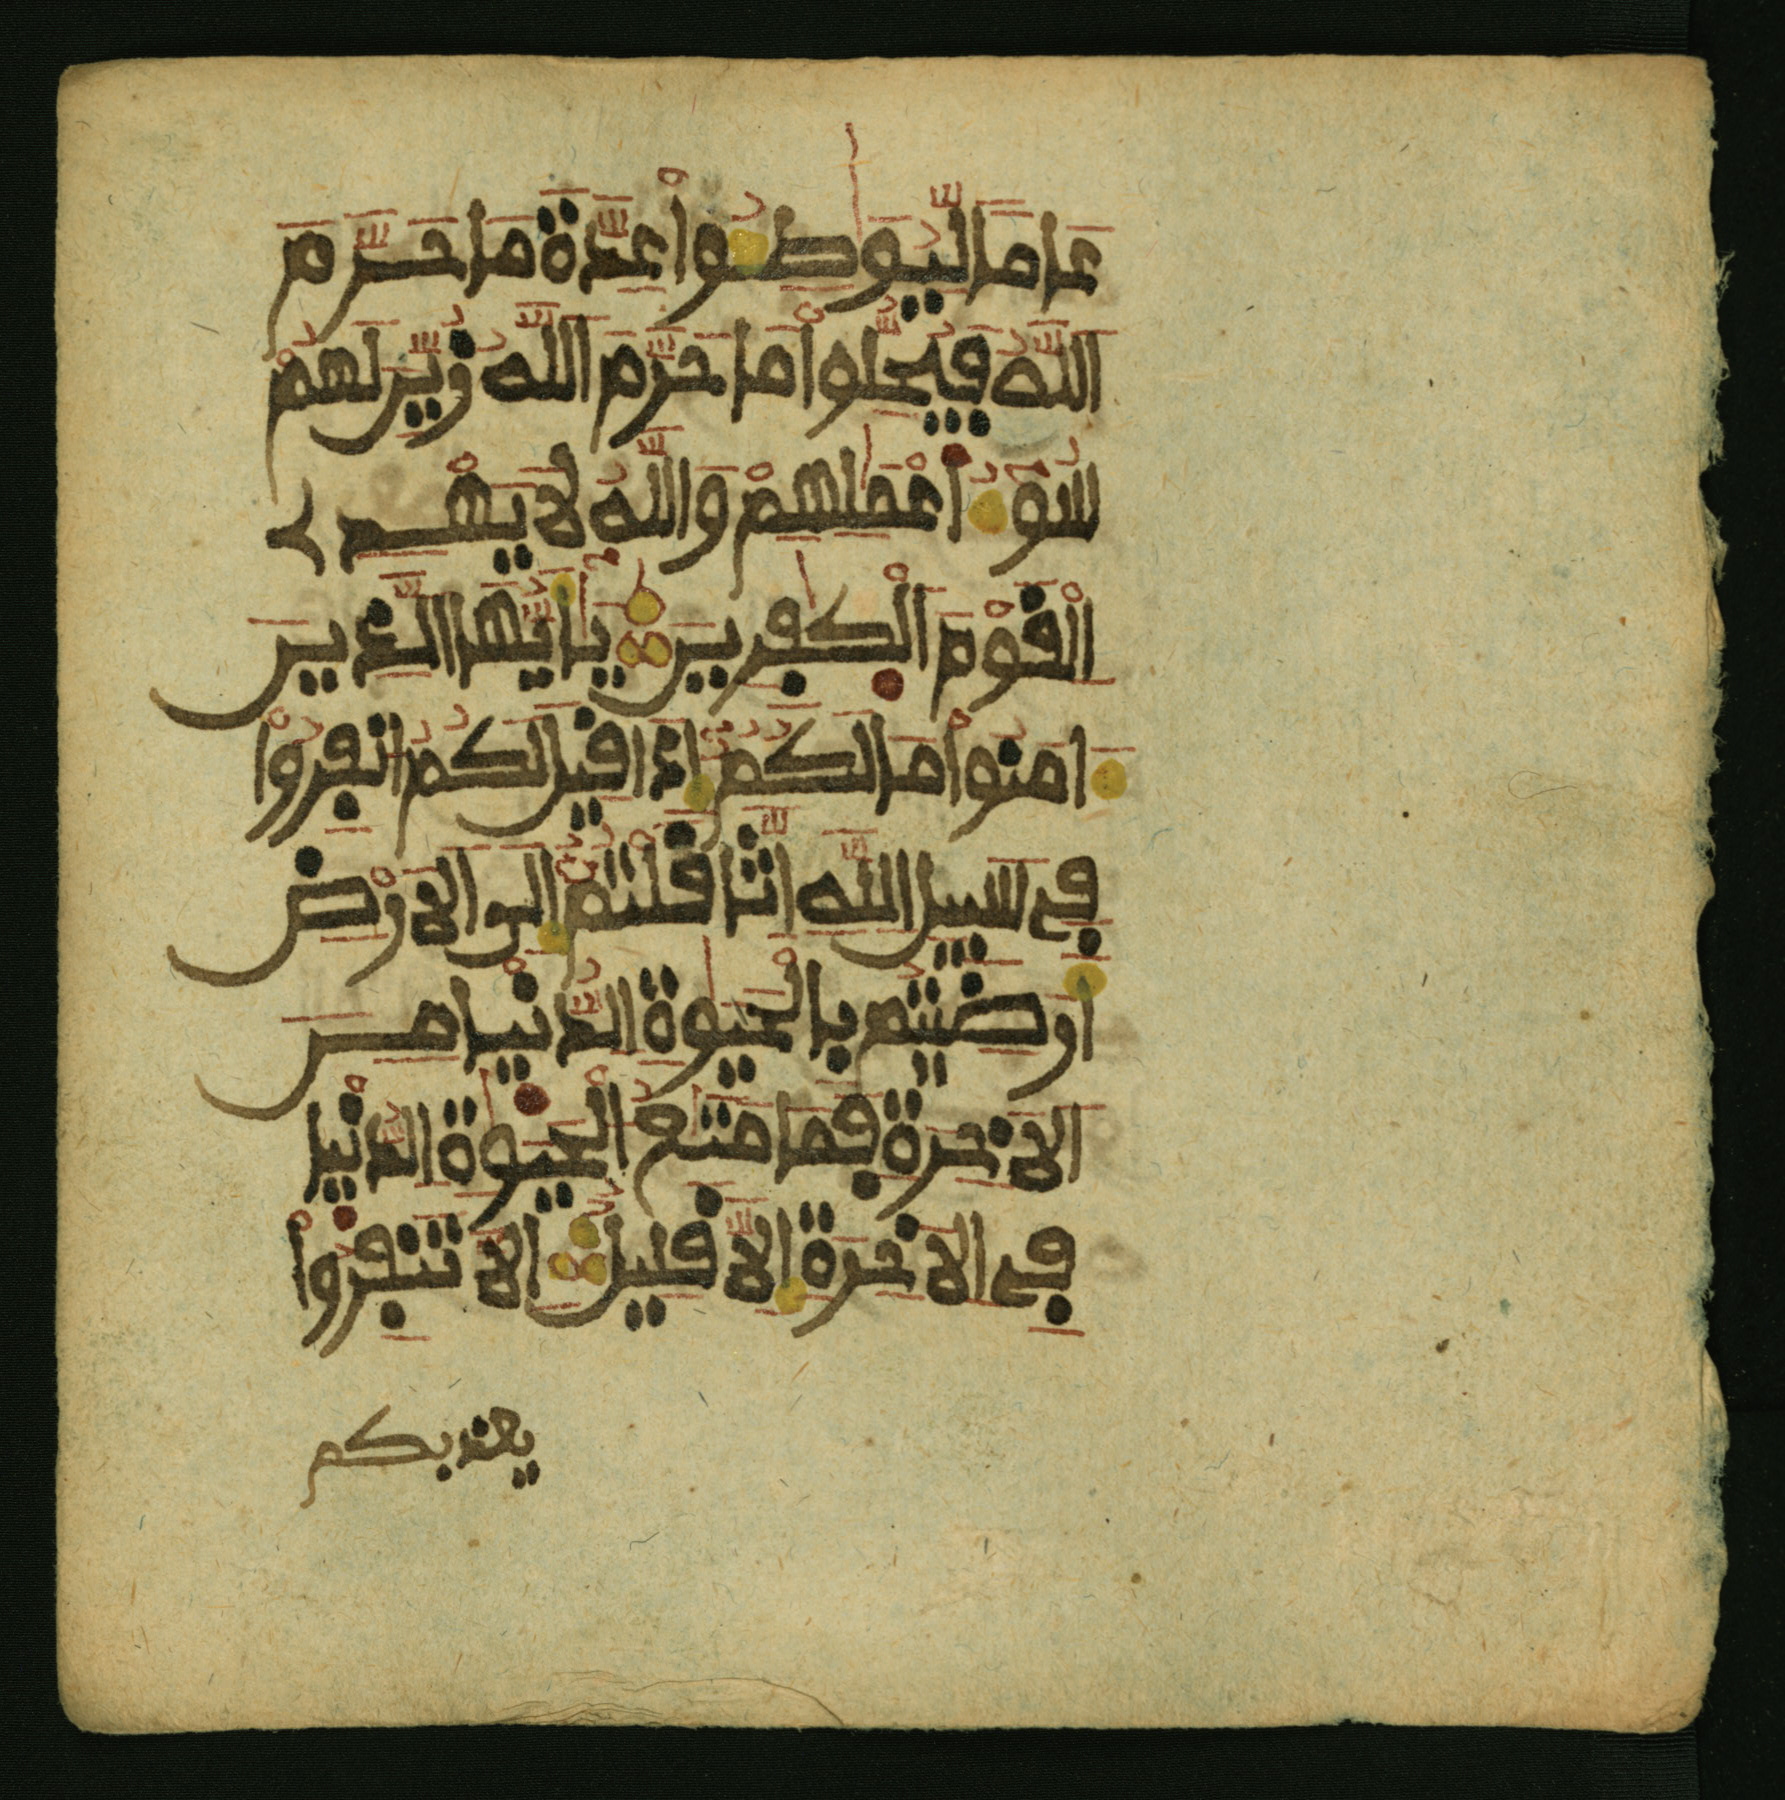 عاما ليوطوا عدة ما حرم
الله فيحلوا ما حرم الله زين لهم
سوء أعملهم والله لا يهدي
القوم الكفرين يأيها الذين
ءامنوا ما لكم إذا قيل لكم انفروا
في سبيل الله اثاقلتم إلى الارض
أرضيتم بالحيوة الدنيا من
الاخرة فما متع الحيوة الدنيا
في الاخرة إلا قليل إلا تنفروا
يعذبكم